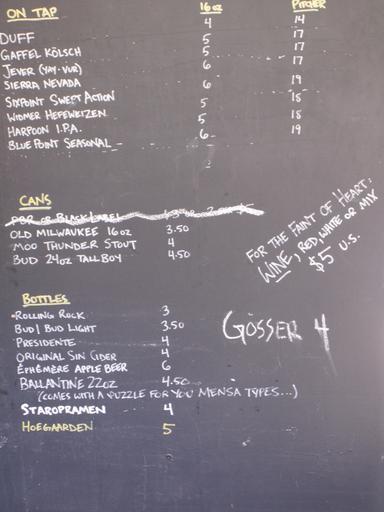 ON TAP 16 oz PITCHER
DUFF 4 14
GAFFEL KÖLSCH 5 17
JEVER (YAY-VUR) 5 17
SIERRA NEVADA 6 17
SIXPOINT SWEET ACTION 6 19
WIDMER HEFEWEIZEN 5 18
HARPOON I.P.A. 5 18
BLUE POINT SEASONAL 6 19
CANS
PBR OR BLACK LABEL
OLD MILWAUKEE 16oz 3.50
MOO THUNDER STOUT 4
BUD 24oz TALLBOY 4.50
FOR THE FAINT OF HEART:
WINE, RED, WHITE OR MIX
$5 U.S.
BOTTLES
ROLLING ROCK 3
BUD/BUD LIGHT 3.50
PRESIDENTE 4
ORIGINAL SIN CIDER 4
ÉPHÉMÈRE APPLE BEER 6
BALLANTINE 22oz 4.50
(COMES WITH A PUZZLE FOR YOU MENSA TYPES...)
STAROPRAMEN 4
HOEGAARDEN 5
GÖSSER 4